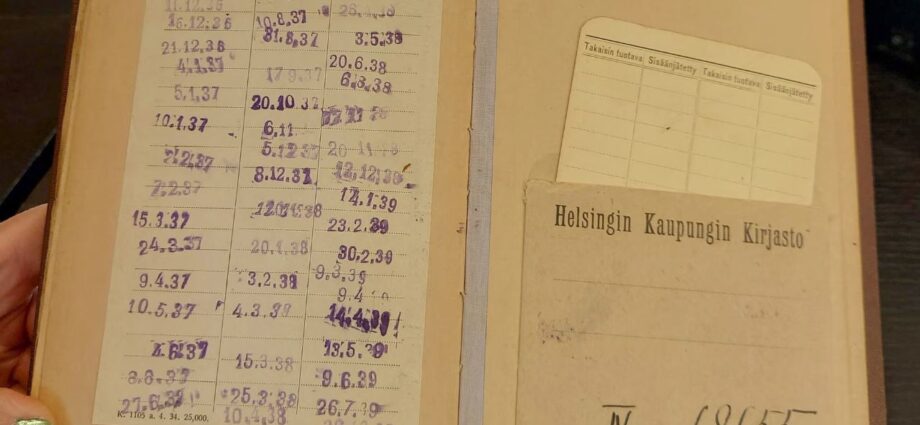 16.12.36
21.12.36
4.1.37
5.1.37
10.1.37
7.2.37
15.3.37
24.3.37
9.4.37
10.5.37
4.6.37
27.6.37
K. 1105 a. 4. 34. 25,000.
10.8.37
31.8.37
17.9.37
20.10.37
6.11
5.12.37
8.12.37
20.1.38
3.2.38
4.3.38
15.3.38
25.3.38
10.4.38
3.5.38
20.6.38
6.8.38
12.12.38
14.1.39
23.2.39
30.2.39
9.3.39
9.4
14.4.39
13.5.39
9.6.39
26.7.39
Takaisin tuotava Sisäänjätetty Takaisin tuotava Sisäänjätetty
Helsingin Kaupungin Kirjasto